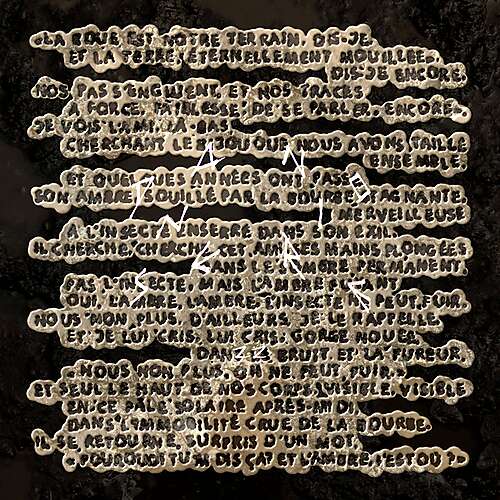 «LA BOUE EST NOTRE TERRAIN, DIS-JE
ET LA TERRE, ÉTERNELLEMENT MOUILLÉE»,
DIS-JE ENCORE.
NOS PAS S'ENGLUENT, ET NOS TRACES
FORCE, DE SE PARLER, ENCORE,
JE VOIS L'AMI LÀ-BAS
CHERCHANT LE BIJOU QUE NOUS AVONS TAILLÉ
ENSEMBLE.
ET QUELQUES ANNÉES ONT PASSÉ
SON AMBRE, SOUILLÉ PAR LA BOURBE STAGNANTE,
MERVEILLEUSE
A L'INSECTE INSÉRRÉ DANS SON EXIL.
IL CHERCHE, CHERCHE CET AMI SES MAINS PLONGÉES
DANS LE PERMANENT,
PAS L'INSECTE, MAIS L'AMBRE FUYANT
OUI, L'AMBRE, L'AMBRE, L'INSECTE NE PEUT FUIR,
NOUS NON PLUS, D'AILLEURS, JE LE RAPPELLE
ET JE LUI CRIS, LUI CRIS, GORGE NOUÉE,
DANS LE BRUIT ET LA FUREUR,
NOUS NON PLUS, ON NE PEUT FUIR,
ET SEUL LE HAUT DE NOS CORPS, VISIBLE, VISIBLE
EN CE PÂLE SOLAIRE APRÈS-MIDI
DANS L'IMMOBILITÉ CRUE DE LA BOURBE,
IL SE RETOURNE, SURPRIS D'UN MOT
«POURQUOI TU ME DIS ÇA? ET L'AMBRE, L'EST OÙ ?»